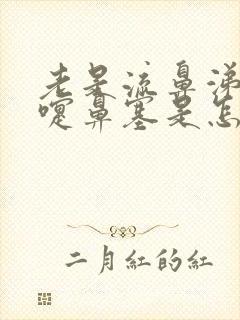 老是流鼻涕
嚏鼻塞是怎
二月紅的紅